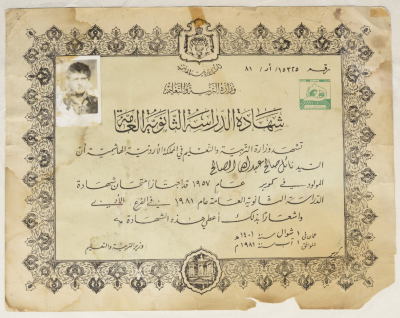 رقم ١٥٣٢٥ / أد / ٨١
وزارة التربية والتعليم
شهادة الدراسة الثانوية العامة
تشهد وزارة التربية والتعليم في المملكة الأردنية الهاشمية أن
السيد نائل صالح عبد الله الصالح
المولود في كوبر عام ١٩٥٧ قد اجتاز امتحان شهادة
الدراسة الثانوية العامة عام ١٩٨١ في الفرع الأدبي
واشعارا بذلك أعطي هذه الشهادة
عمان في ١ شوال سنة ١٤٠١ هـ
الموافق ١ آب سنة ١٩٨١ م
وزير التربية والتعليم